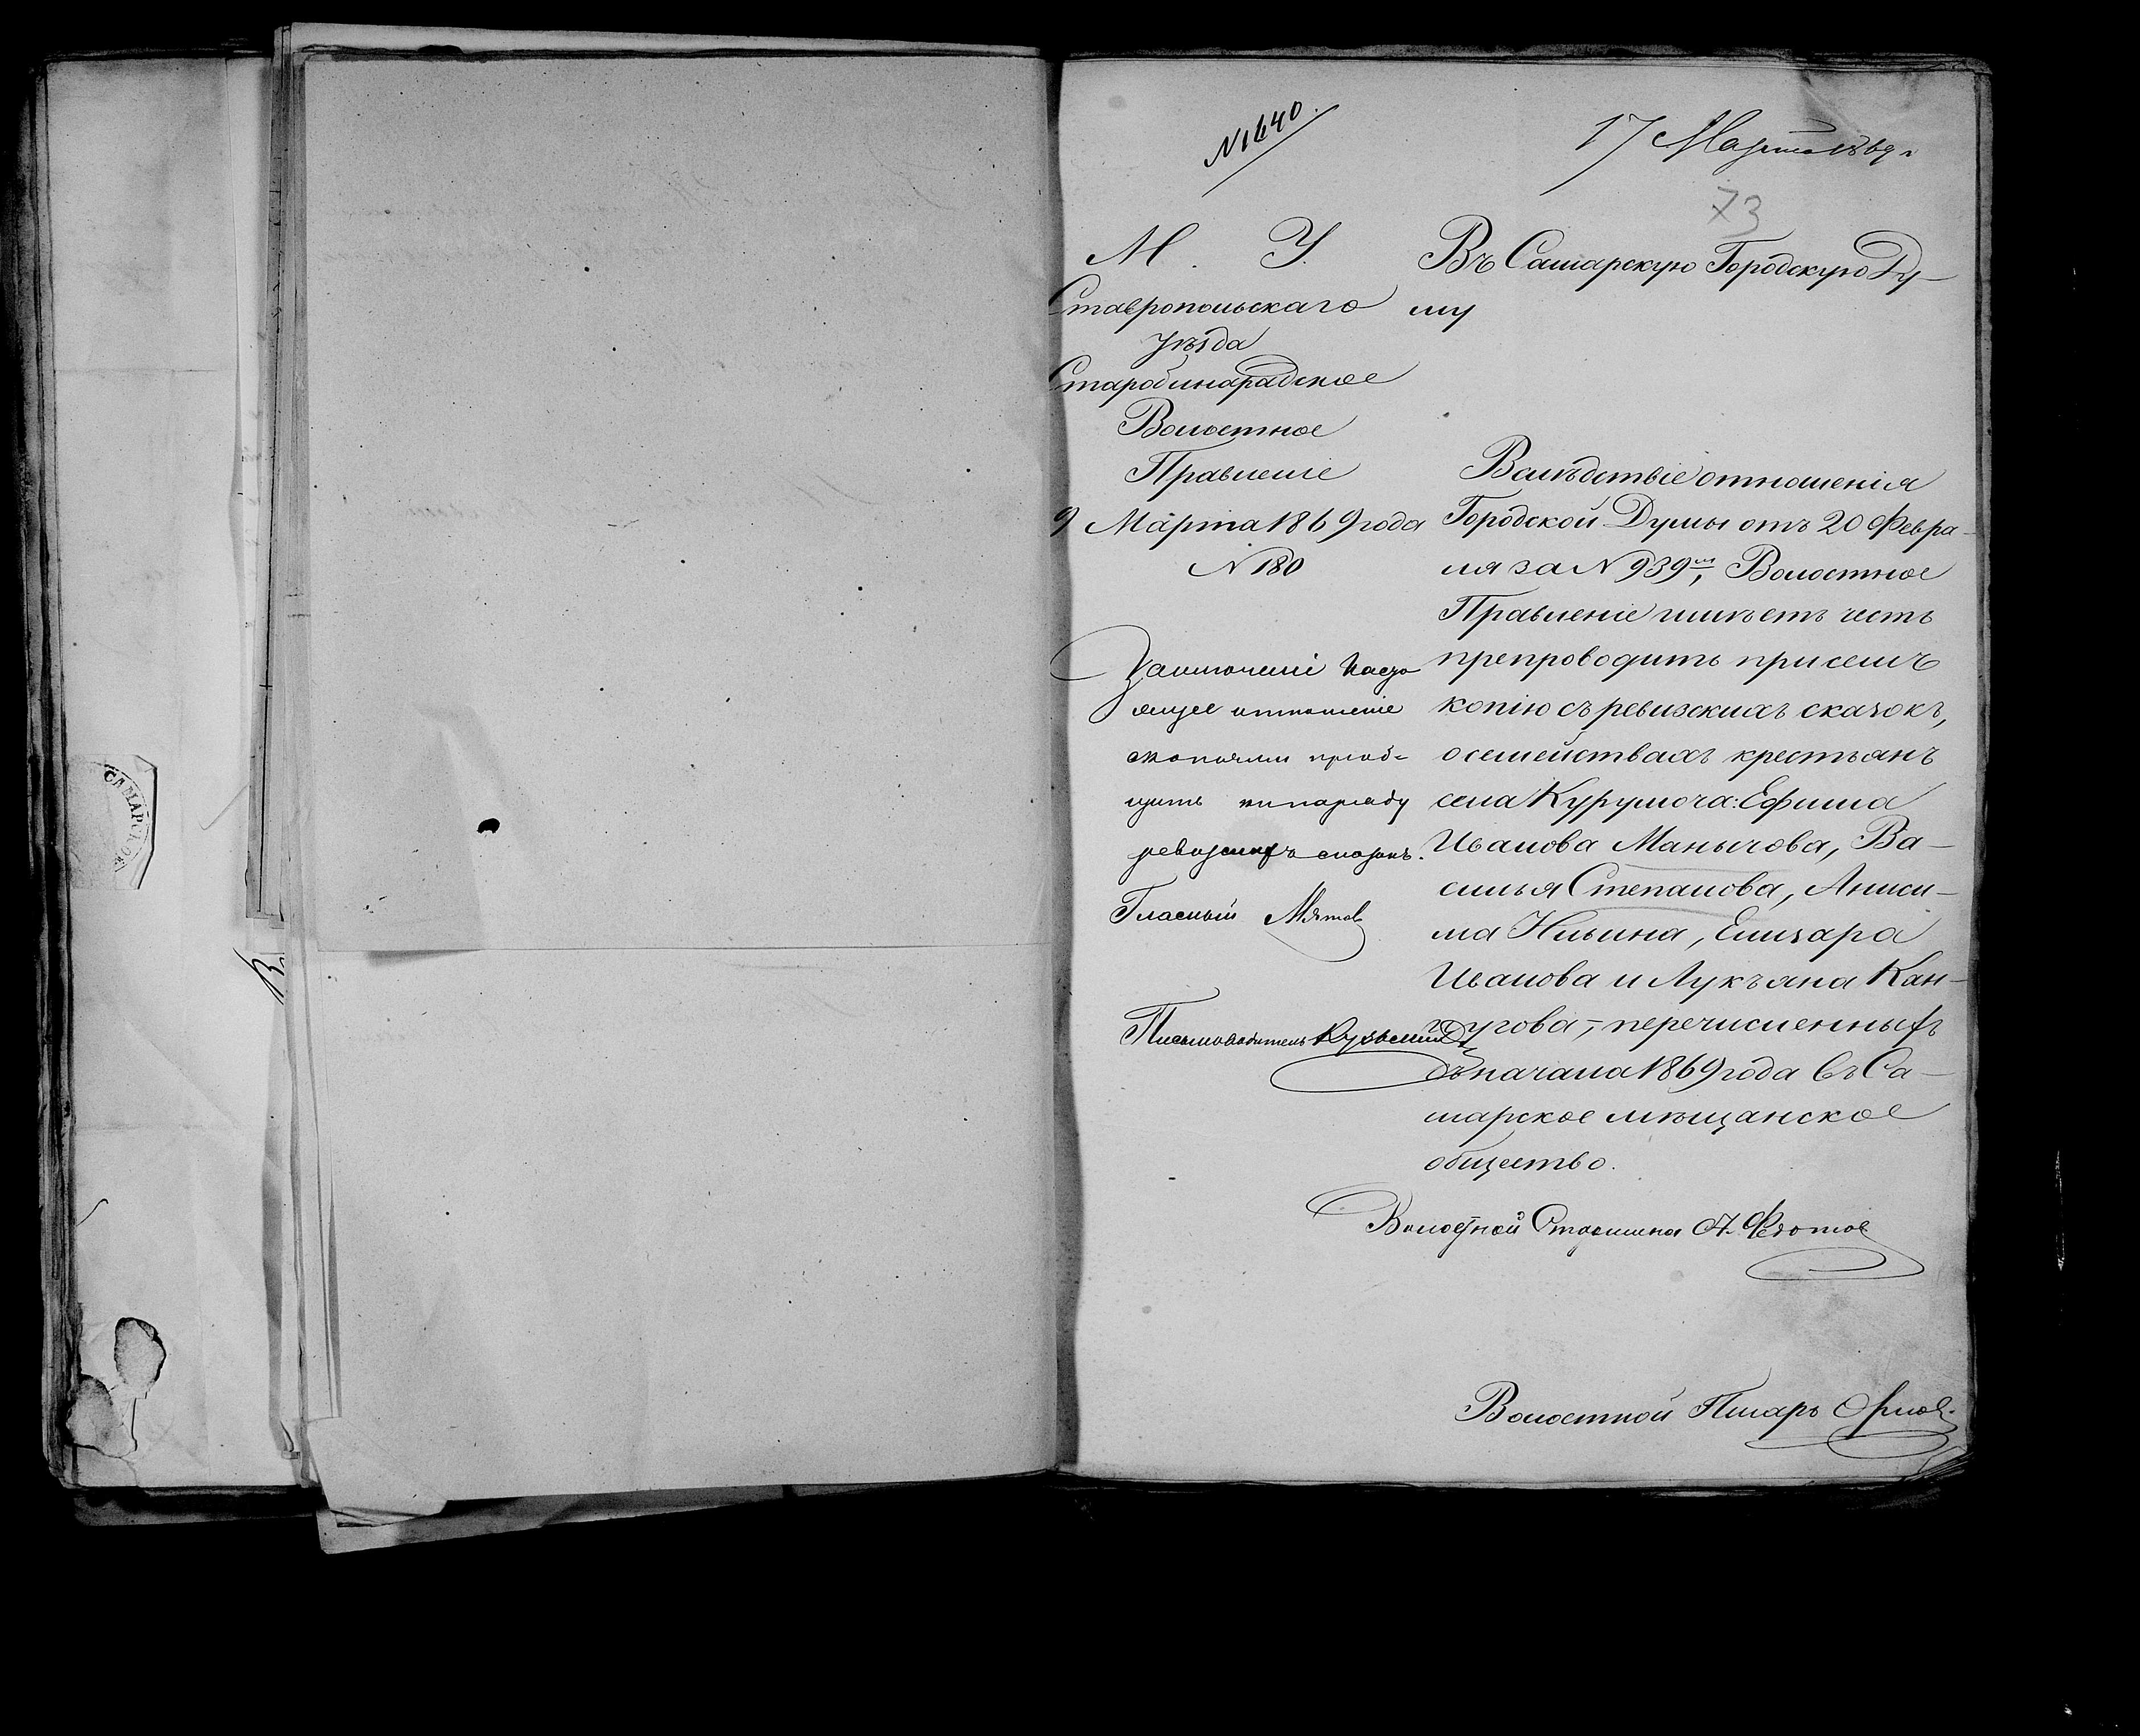 N 1640.
17 Марта 1869 г
73
М. У.
Ставропольскаго
уѣзда
Старобинарадское
Волостное
Правленіе
9 Марта 1869 года
N 180
Заключеніе настоящее отношеніе
ревизскихъ сказокъ.
Гласный
Письмоводитель
Въ Самарскую Городскую Ду-
му
Вслѣдствіе отношенія
Городской Думы отъ 20 Февра-
ля за N 939м, Волостное
Правленіе имѣетъ честь
препроводить при семъ
копію съ ревизскихъ сказокъ,
о семействахъ крестьянъ
села Курумоча: Ефима
Иванова Манычова, Ва-
силья Степанова, Аниси-
ма Ильина, Елизара
Иванова и Лукъяна Кан-
перечисленныхъ
съ начала 1869 года въ Са-
марское мѣщанское
общество.
Волостной Старшина А. Федотов
Волостной Писарь Орлов
САМАРСКОЙ